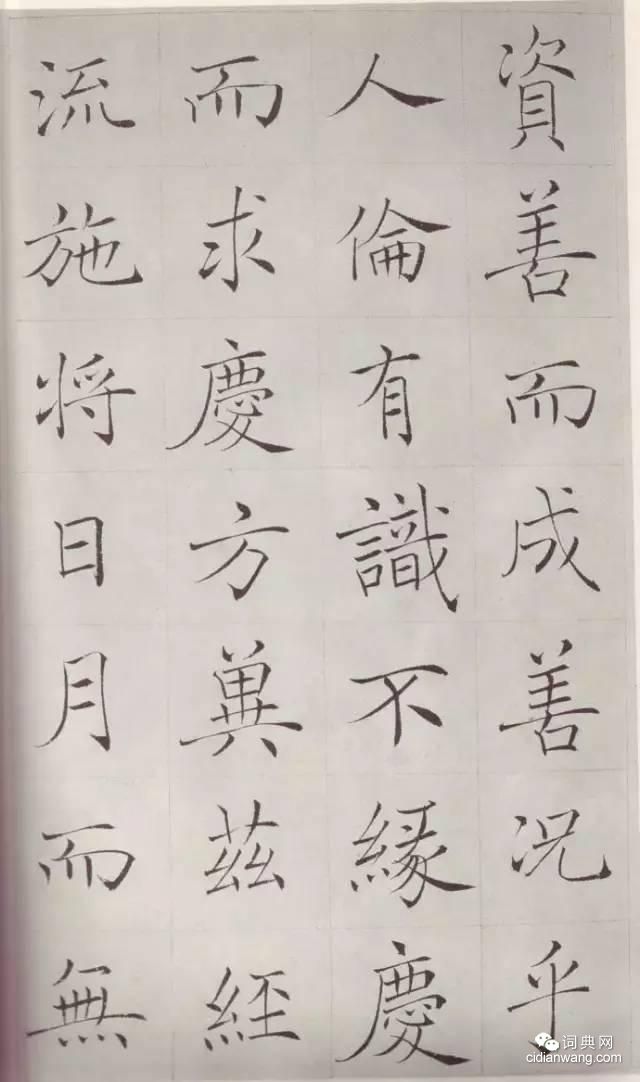 資善而成善況乎
人倫有識不縁慶
而求慶方兾茲經
流施将日月而無
词典网
cidianwang.com